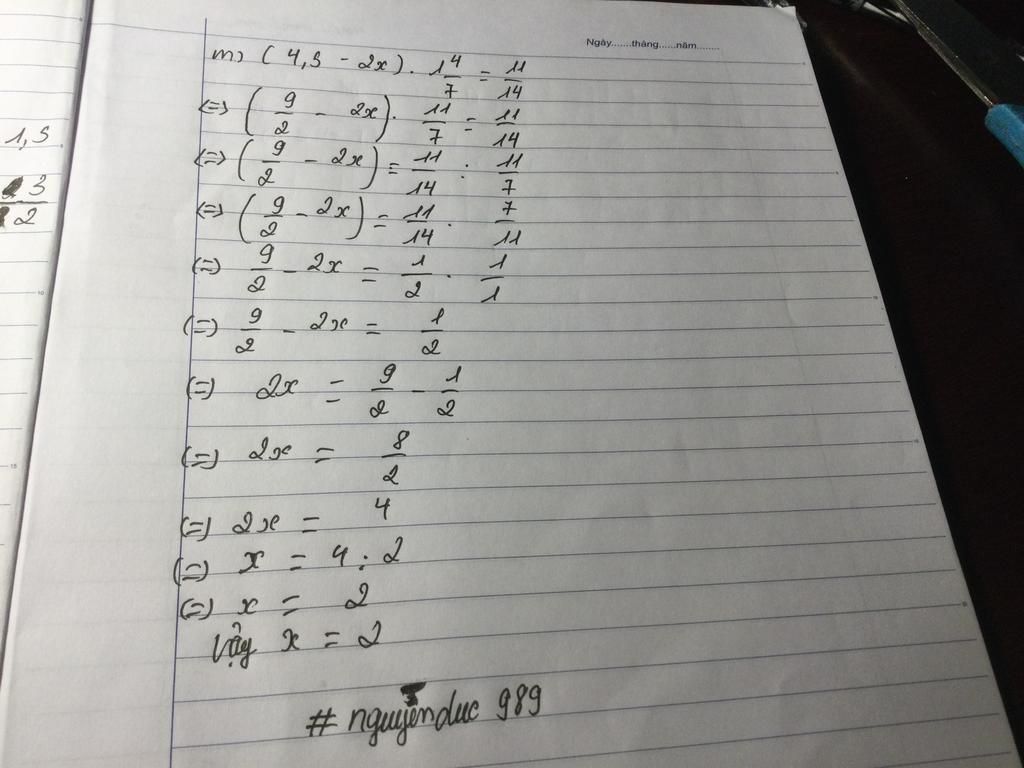 Ngày.......tháng......năm........
m) (4,5 - 2x) . 1 4/7 = 11/14
<=> (9/2 - 2x) . 11/7 = 11/14
<=> (9/2 - 2x) = 11/14 : 11/7
<=> (9/2 - 2x) = 11/14 . 7/11
<=> 9/2 - 2x = 1/2 . 1/1
<=> 9/2 - 2x = 1/2
<=> 2x = 9/2 - 1/2
<=> 2x = 8/2
<=> 2x = 4
<=> x = 4 : 2
<=> x = 2
Vậy x = 2
# nguyễnduc 989
1,5
3/2